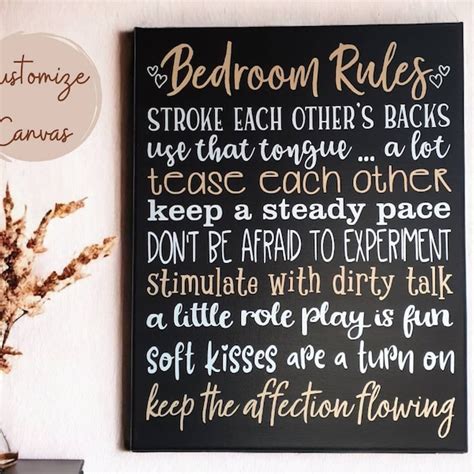 ustomize
Canvas
Bedroom Rules
STROKE EACH OTHER'S BACKS
use that tongue ... a lot
tease each other
keep a steady pace
DON'T BE AFRAID TO EXPERIMENT
stimulate with dirty talk
a little role play is fun
soft kisses are a turn on
keep the affection flowing